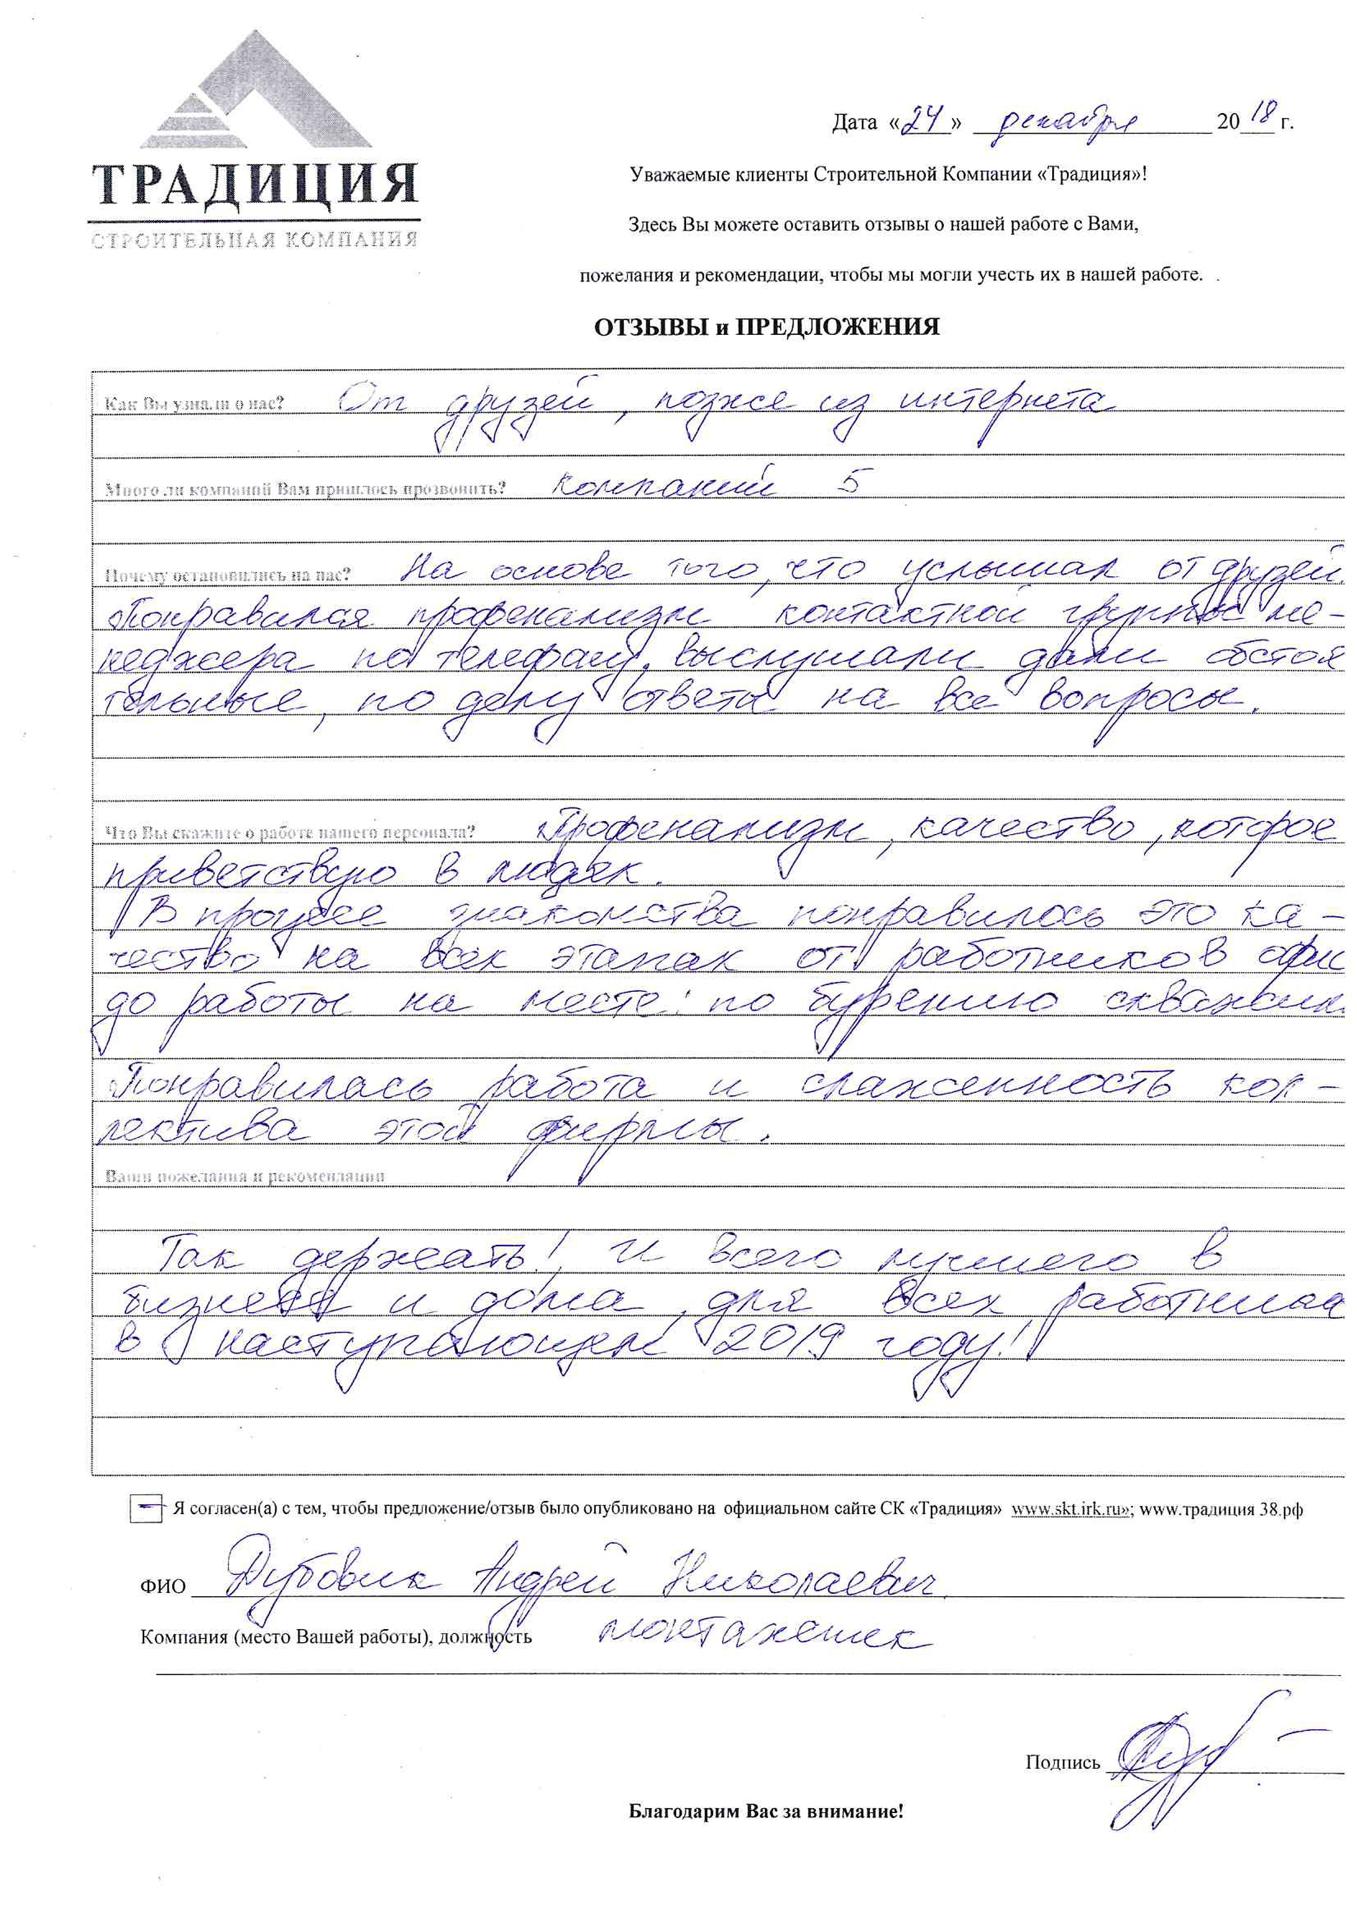 ТРАДИЦИЯ
СТРОИТЕЛЬНАЯ КОМПАНИЯ
Дата «24» декабря 2018 г.
Уважаемые клиенты Строительной Компании «Традиция»!
Здесь Вы можете оставить отзывы о нашей работе с Вами,
пожелания и рекомендации, чтобы мы могли учесть их в нашей работе. .
ОТЗЫВЫ и ПРЕДЛОЖЕНИЯ
Как Вы узнали о нас? От друзей, позже из интернета
Много ли компаний Вам пришлось прозвонить? компаний 5
Почему остановились на нас? На основе того, что услышал от друзей.
Понравился профенализм контактной группы ме-
неджера по телефону, выслушали дали обстоя
тельные, по делу ответы на все вопросы.
Что Вы скажите о работе нашего персонала? Профенализм, качество, которое
приветствую в людях.
В процессе знакомства понравилось это ка-
чество на всех этапах от работников офис
до работы на месте: по бурению скважин.
Понравилась работа и слаженность кол-
лектива этой фирмы.
Ваши пожелания и рекомендации
Так держать! И всего лучшего в
бизнесе и дома, для всех
в наступающем 2019 году!
Я согласен(а) с тем, чтобы предложение/отзыв было опубликовано на официальном сайте СК «Традиция» www.skt.irk.ru»; www.традиция 38.рф
ФИО Дубовик Андрей Николаевич
Компания (место Вашей работы), должность монтажник
Подпись
Благодарим Вас за внимание!